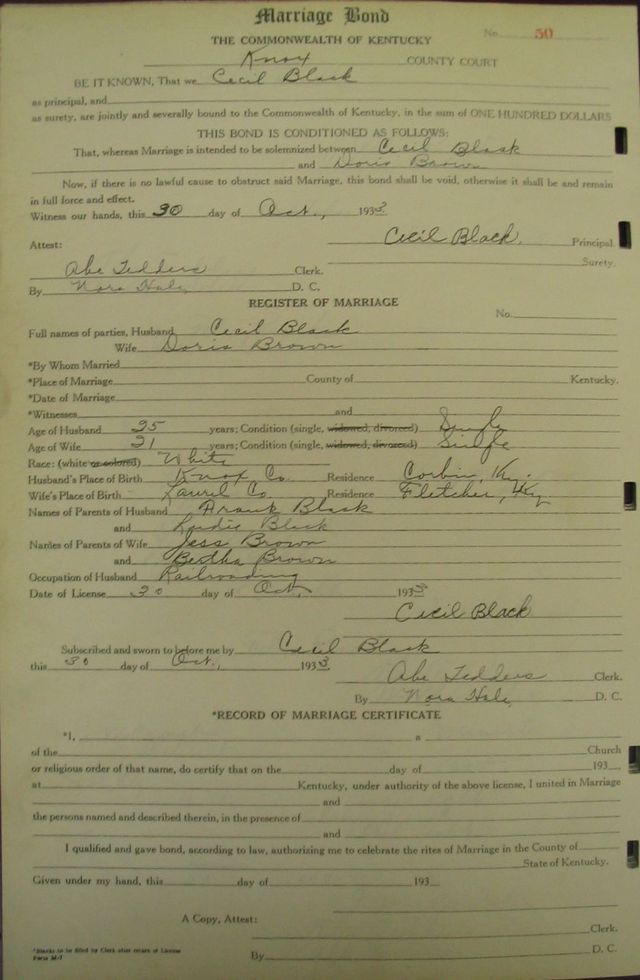 Marriage Bond
No. 50
THE COMMONWEALTH OF KENTUCKY
Knox COUNTY COURT
BE IT KNOWN, That we Cecil Black
as principal, and
as surety, are jointly and severally bound to the Commonwealth of Kentucky, in the sum of ONE HUNDRED DOLLARS
THIS BOND IS CONDITIONED AS FOLLOWS:
That, whereas Marriage is intended to be solemnized between Cecil Black
and Doris Brown
Now, if there is no lawful cause to obstruct said Marriage, this bond shall be void, otherwise it shall be and remain
in full force and effect.
Witness our hands, this 30 day of Oct., 1933
Cecil Black. Principal
Attest:
Surety.
Abe Tedders Clerk.
By Nora Hale D. C.
REGISTER OF MARRIAGE
No.
Full names of parties, Husband Cecil Black
Wife Doris Brown
*By Whom Married
*Place of Marriage County of Kentucky.
*Date of Marriage
*Witnesses and
Age of Husband 25 years; Condition (single, widowed, divorced) Single
Age of Wife 21 years; Condition (single, widowed, divorced) Single
Race: (white or colored) White
Husband's Place of Birth Knox Co. Residence Corbin, Ky.
Wife's Place of Birth Laurel Co. Residence Fletcher, Ky
Names of Parents of Husband Frank Black
and Black
Names of Parents of Wife Jess Brown
and Bertha Brown
Occupation of Husband Railroading
Date of License 30 day of Oct. 1933
Cecil Black
Subscribed and sworn to before me by Cecil Black
this 30 day of Oct., 1933
Abe Tedders Clerk.
By Nora Hale D. C.
*RECORD OF MARRIAGE CERTIFICATE
*I, a
of the Church
or religious order of that name, do certify that on the day of 193
at Kentucky, under authority of the above license, I united in Marriage
and
the persons named and described therein, in the presence of
and
I qualified and gave bond, according to law, authorizing me to celebrate the rites of Marriage in the County of
State of Kentucky.
Given under my hand, this day of 193
A Copy, Attest:
Clerk.
*Blanks to be filled by Clerk after return of License
Form M-7
By D. C.